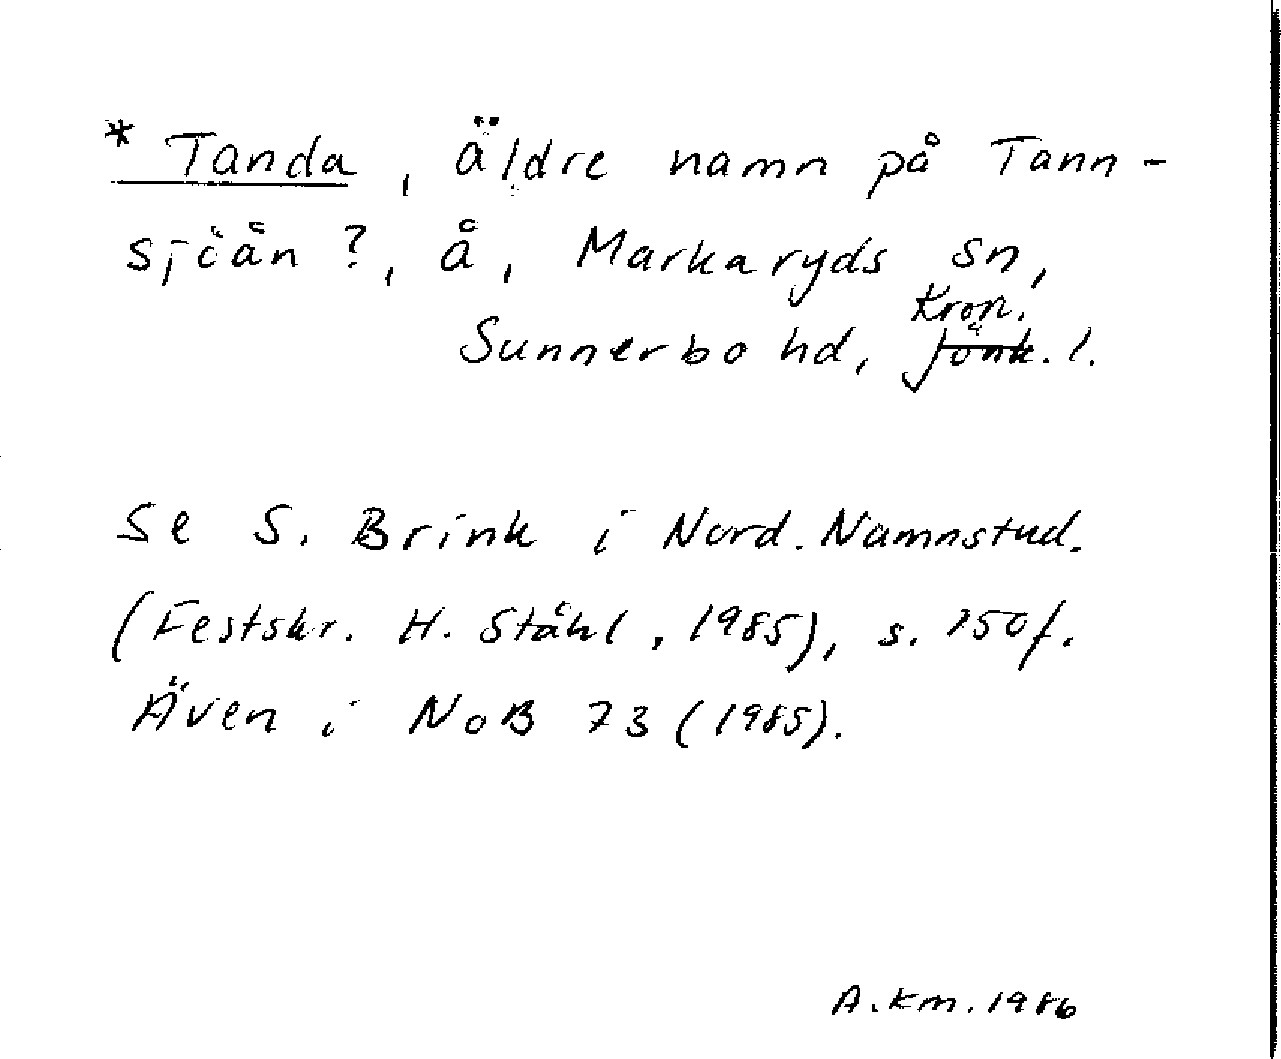 * Tanda, äldre namn på Tann-
sjöån ?, å, Markaryds sn,
Kron.
Sunnerbo hd, Jönk. l.
Se S. Brink i Nord. Namnstud.
(Festskr. H. Ståhl, 1985), s. 150f.
Även i NoB 73 (1985).
A.Km. 1986